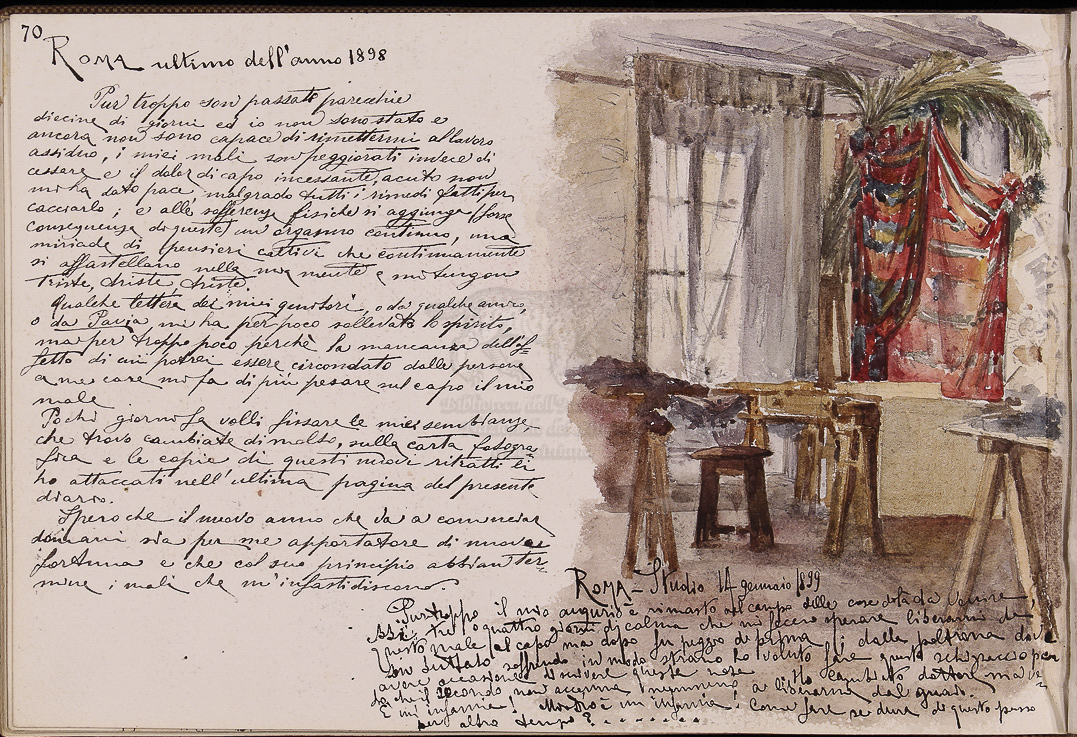 70
ROMA ultimo dell'anno 1898
Pur troppo son passate parecchie
diecine di giorni ed io non sono stato e
ancora non sono capace di rimettermi al lavoro
assiduo, i miei mali son peggiorati invece di
cessare e il dolor di capo incessante, acuto non
mi ha dato pace malgrado tutti i rimedi fatti per
cacciarlo; e alle sofferenze fisiche si aggiunge (forse
conseguenza di queste) un orgasmo continuo, una
miriade di pensieri cattivi che continuamente
si affastellano nella mia mente e mi tengon
triste, triste, triste.
Qualche lettera dei miei genitori, o da qualche amico,
o da Pavia, mi ha per poco sollevato lo spirito,
ma per troppo poco perchè la mancanza dell'af-
fetto di cui potrei essere circondato dalle persone
a me care mi fa di più pesare sul capo il mio
male.
Pochi giorni fa volli fissare le mie sembianze
che trovo cambiate di molto, sulla carta fotogra
fica e le copie di questi nuovi ritratti li
ho attaccati nell'ultima pagina del presente
diario.
Spero che il nuovo anno che va a cominciar
domani sia per me apportatore di nuova
fortuna e che col suo principio abbian ter-
mine i mali che m'infastidiscono.
ROMA - Studio 14 gennaio 1899
Purtroppo il mio augurio è rimasto nel campo delle cose
tre o quattro giorni di calma che mi fecero sperare liberarmi di
questo male al capo ma dopo fu peggio di prima; dalla poltrona dove
son soffrendo in modo strano ho voluto fare questo schizzaccio per
avere occasione di scrivere queste note. Ho cambiato dottore ma ve-
do che il secondo non accenna nemmeno a liberarmi dal guaio.
È un'infamia! un'infamia. Come fare se dura di questo passo
per altro tempo? . . . . . . . .